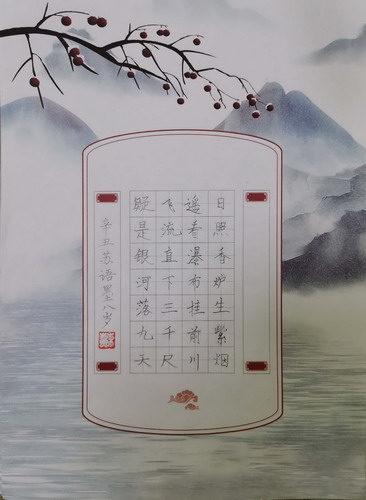 日照香炉生紫烟
遥看瀑布挂前川
飞流直下三千尺
疑是银河落九天
辛丑苏语墨八岁